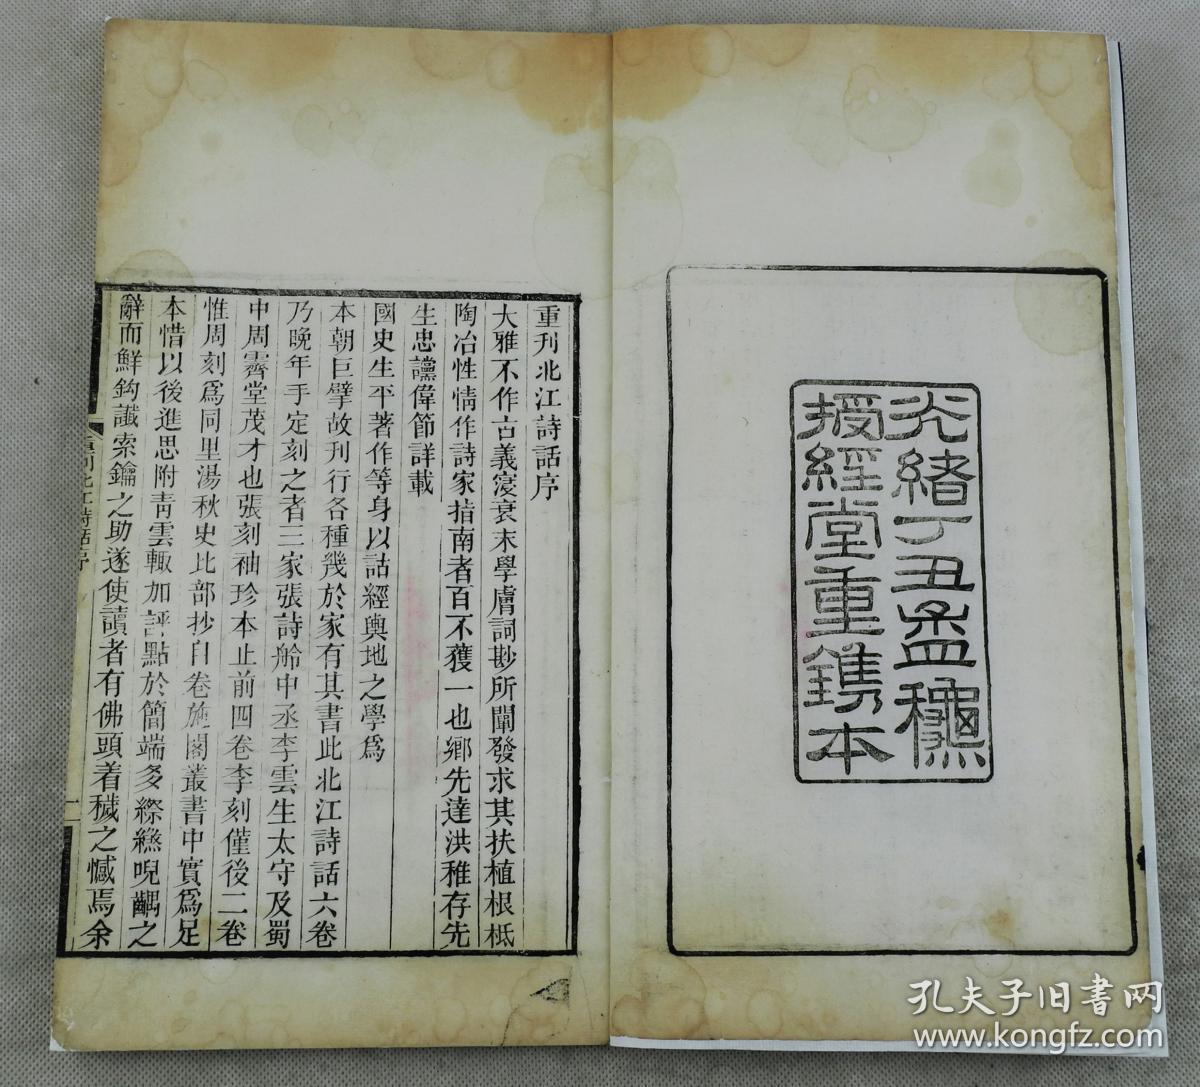 光緒丁丑孟穐
授經堂重鐫本
重刊北江詩話序
大雅不作古義寖衰末學膚詞尠所闡發求其扶植根柢
陶冶性情作詩家指南者百不獲一也鄉先達洪稚存先
生忠讜偉節詳載
國史生平著作等身以詁經輿地之學爲
本朝巨擘故刊行各種幾於家有其書此北江詩話六卷
乃晚年手定刻之者三家張詩舲中丞李雲生太守及蜀
中周霽堂茂才也張刻袖珍本止前四卷李刻僅後二卷
惟周刻爲同里湯秋史比部抄自卷施閣叢書中實爲足
本惜以後進思附青雲輙加評點於簡端多繆繞唲齵之
辭而鮮鉤讖索鑰之助遂使讀者有佛頭着穢之憾焉余
重刊北江詩話序
一
孔夫子旧书网
www.kongfz.com